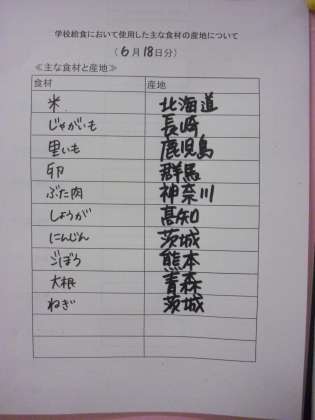 学校給食において使用した主な食材の産地について
(6月18日分)
≪主な食材と産地≫
食材 産地
米 北海道
じゃがいも 長崎
里いも 鹿児島
卵 群馬
ぶた肉 神奈川
しょうが 高知
にんじん 茨城
ごぼう 熊本
大根 青森
ねぎ 茨城